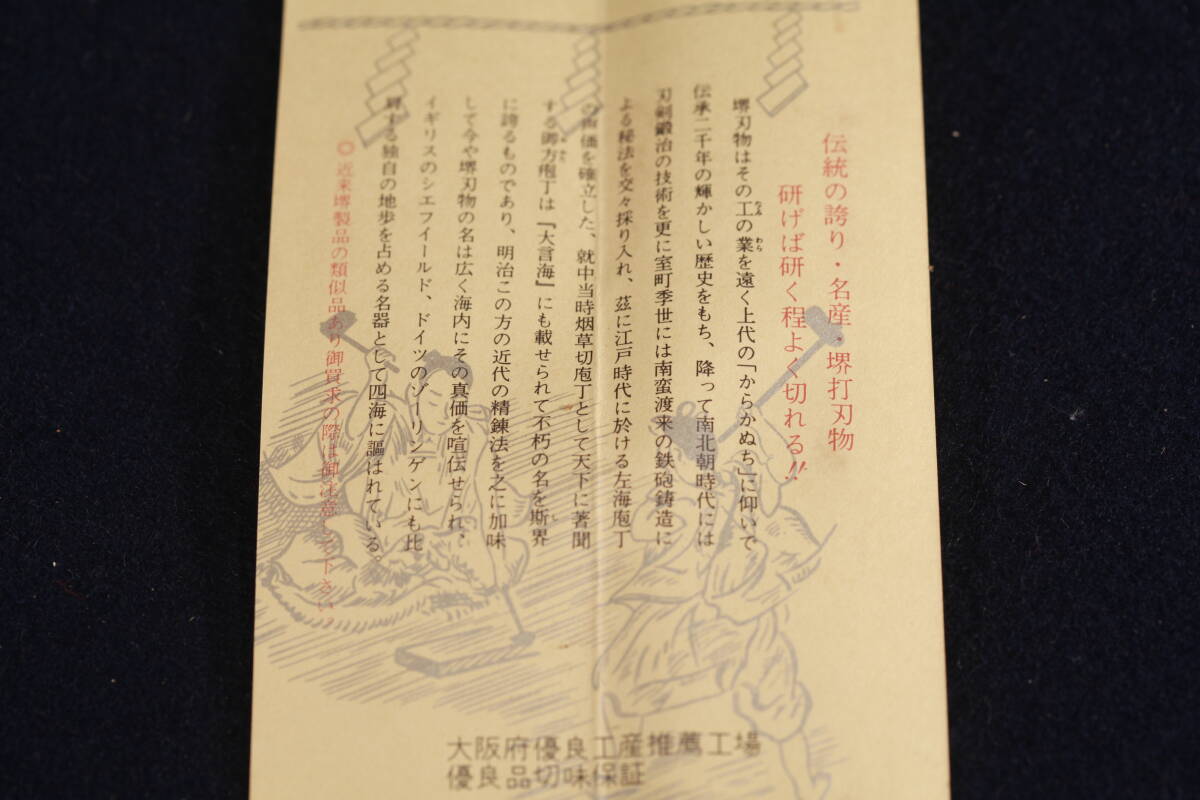 伝統の誇り・名産・堺打刃物
研げば研く程よく切れる!!
堺刃物はその工の業を遠く上代の「からかぬち」に仰いで
伝承二千年の輝かしい歴史をもち、降って南北朝時代には
刃剣鍛冶の技術を更に室町季世には南蛮渡来の鉄砲鋳造に
よる秘法を交々採り入れ、茲に江戸時代に於ける左海庖丁
の声価を確立した、就中当時烟草切庖丁として天下に著聞
する御方庖丁は『大言海』にも載せられて不朽の名を斯界
に誇るものであり、明治この方の近代の精錬法を之に加味
して今や堺刃物の名は広く海内にその真価を喧伝せられ、
イギリスのシエフイールド、ドイツのゾーリンゲンにも比
肩する独自の地歩を占める名器として四海に謳はれている。
◎近来堺製品の類似品あり御買求の際は御注意して下さい
大阪府優良工産推薦工場
優良品切味保証